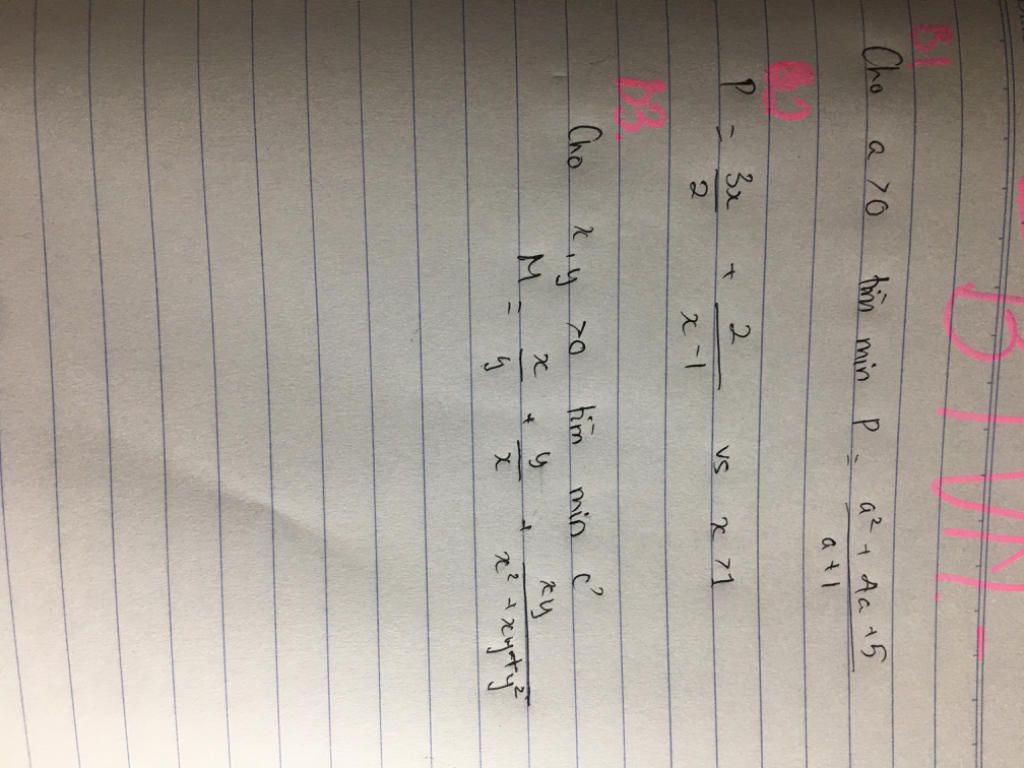 BTVN
B1
Cho a > 0 tìm min P = (a² + 4a + 5)/(a + 1)
B2
P = 3x/2 + 2/(x - 1) vs x > 1
B3.
Cho x, y > 0 tìm min c²
M = x/y + y/x + xy/(x² + xy + y²)